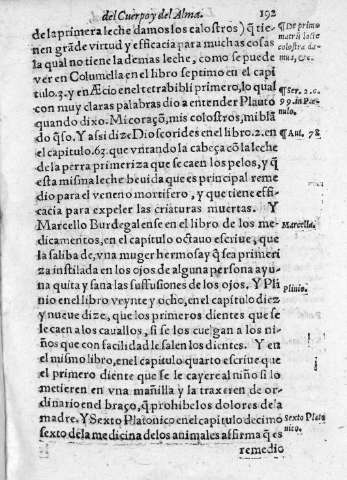 del Cuerpo y del Alma. 192
de la primera leche damos los calostros) q̃ tie-
nen grãde virtud y efficacia para muchas cosas
la qual no tiene la demas leche, como se puede
ver en Columella en el libro septimo en el capi
tulo.3. y en Æcio en el tetrabibli primero, lo qual
con muy claras palabras dio a entender Plauto
quando dixo. Mi coraçõ, mis colostros, mi blã
do q̃so. Y assi dize Dioscorides en el libro.2. en
el capitulo.63. que vntando la cabeça cõ la leche
de la perra primeriza que se caen los pelos, y q̃
esta misma leche beuida que es principal reme
dio para el veneno mortifero, y que tiene effi-
cacia para expeler las criaturas muertas. Y
Marcello Burdegalense en el libro de los me-
dicamentos, en el capitulo octauo escriue, que
la saliba de, vna muger hermosa y q̃ sea primeri
za instilada en los ojos de alguna persona ayu-
na quita y sana las suffusiones de los ojos. Y Pli
nio en el libro veynte y ocho, en el capitulo diez
y nueue dize, que los primeros dientes que se
le caen a los cauallos, si se los cuelgan a los ni-
ños que con facilidad le salen los dientes. Y en
el mismo libro, en el capitulo quarto escriue que
el primero diente que se le cayere al niño si lo
metieren en vna manilla y la traxeren de or-
dinario en el braço, q̃ prohibe los dolores de la
madre. Y Sexto Platonico en el capitulo decimo
sexto de la medicina de los animales affirma q̃ es
remedio
¶De primo
matris lacte
colostra da-
mus, &c.
¶Ser. 2. o.
99. in Pæ-
nulo.
¶Aut. 78.
Marcello.
Plinio.
Sexto Plato
nico.